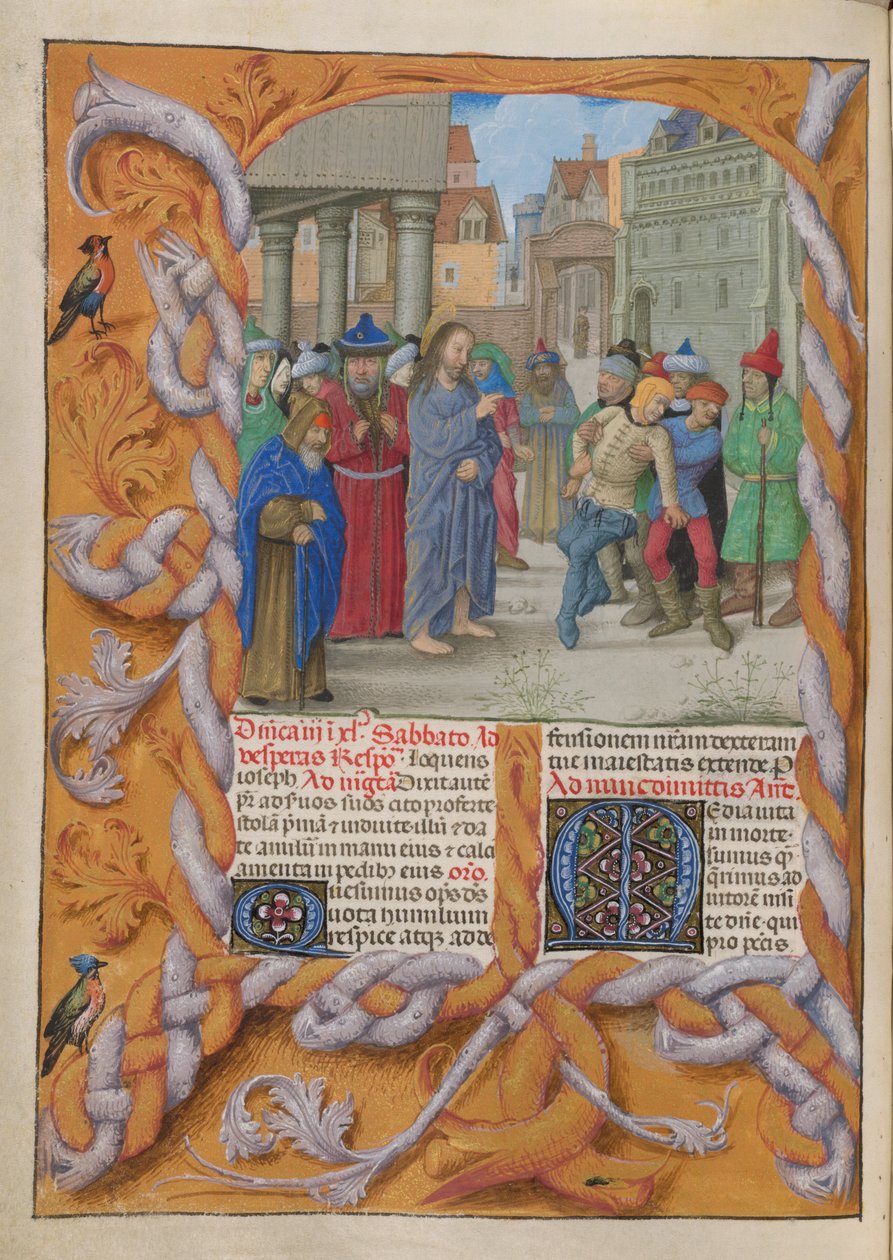 Dn̄ica iij i xl͛ Sabbato Ad
vesperas Respo᷒ Loquens
ioseph. Ad m̄gtā Dixit autē
pr̄ ad s̄uos suos cito proferte
stolā pmā ⁊ induite illū ⁊ da
te anulū in manu eius ⁊ calci
amenta in pedibꝫ eius oro.
Quesumus op̄s ds̄
vota humilium
respice atqꝫ ad de
fensionem nr̄am dexteram
tue maiestatis extende P
Ad nunc dimittis Ant.
Media vita
in morte
sumus qͥ
q̄rimus ad
iutorē nisi
te dn̄e qui
pro pctis